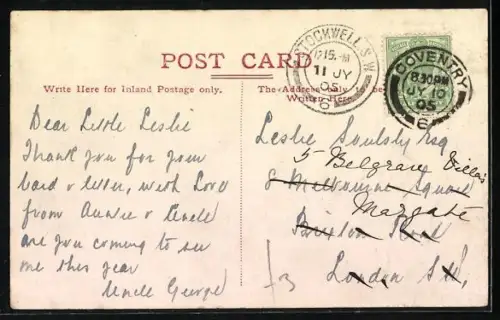 POST CARD
Write Here for Inland Postage only.
The Address Only to be
Written Here.
STOCKWELL S.W.
1215. M
11 JY
05
COVENTRY
8.30PM
JY 10
05
Dear Little Leslie
Thank you for your
card & letter, with Love
from Auntie & Uncle
are you coming to see
me this year
Uncle George
Leslie Soulsby Esq
5 Belgrave Villas
8 Melbourne Square
Margate
Brixton Road
London SW,